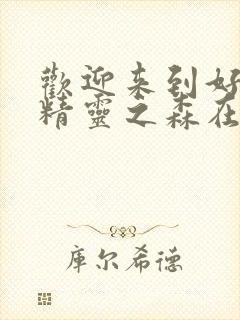 歡迎来到好
精靈之森在
库尔希德